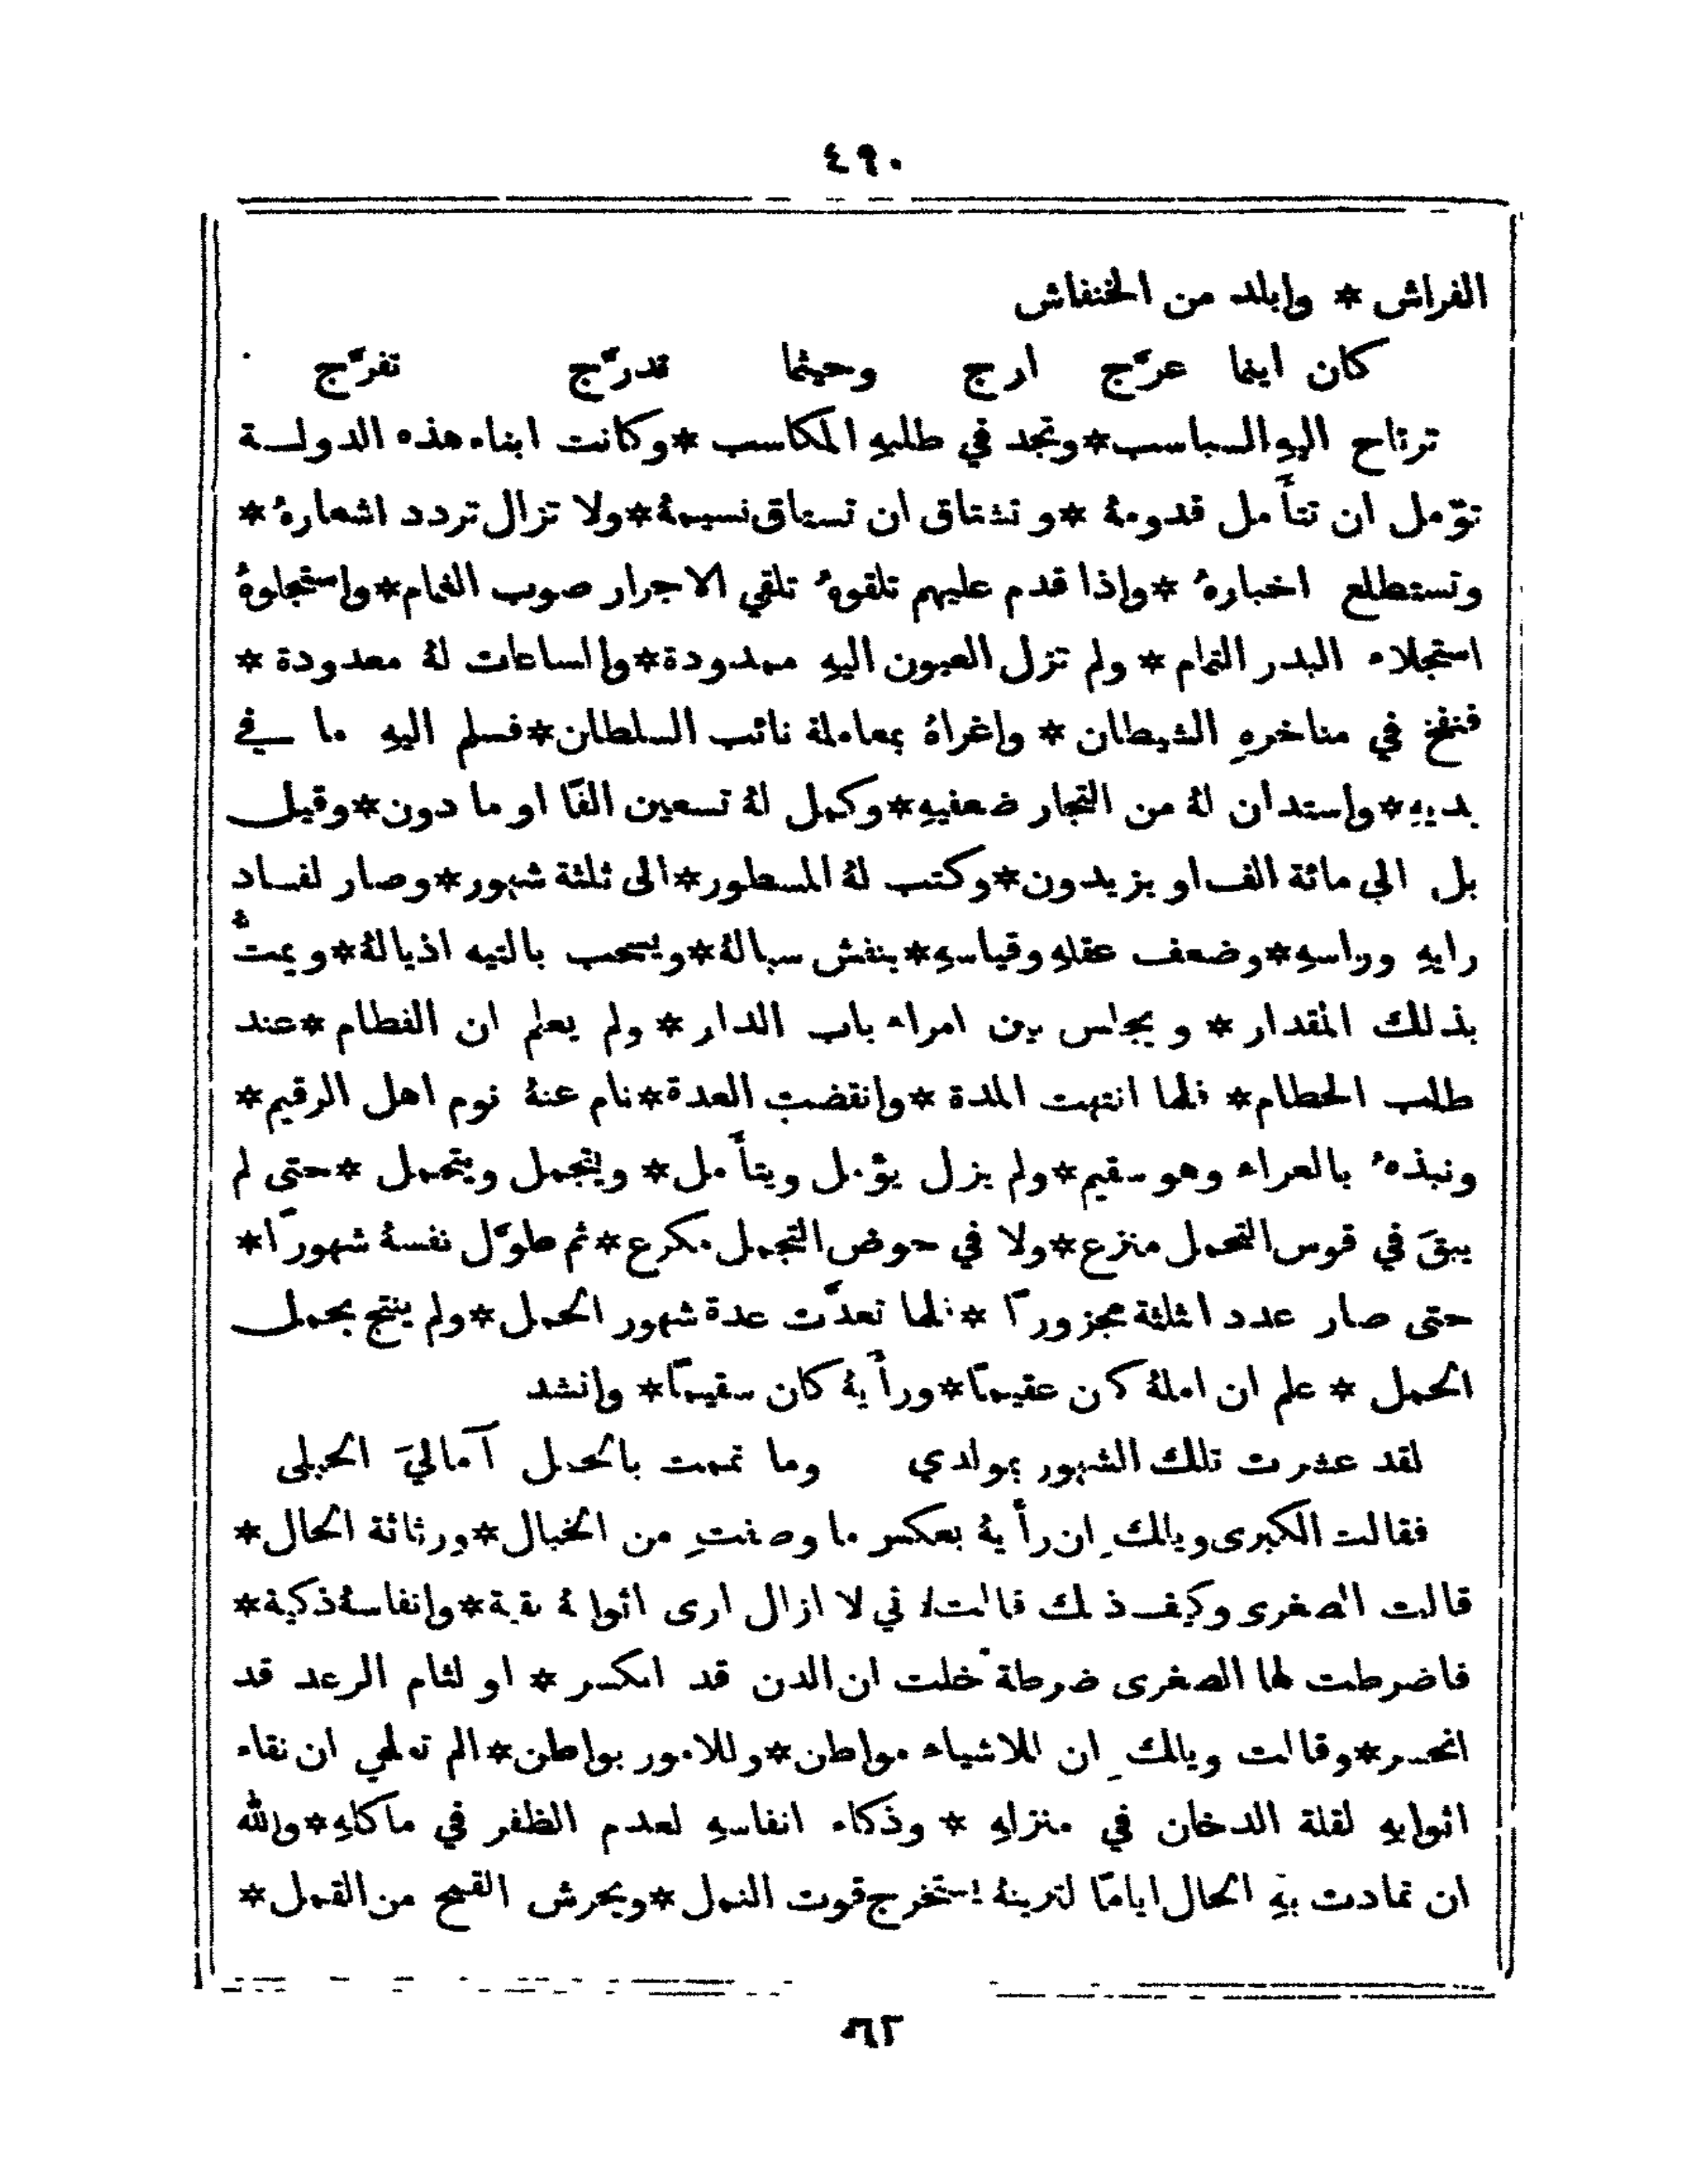 ٤٩٠
الفراش * وابلد من الخنفاش
كان اينما عرّج ارج وحيثما تدرّج تفرّج
ترتاح اليهِ السباسب*وتجد في طلبهِ المكاسب*وكانت ابناء هذه الدولة
توّمل ان تتأَمل قدومهُ*وتشتاق ان تستاق نسيمهُ*ولا تزال تردد اشعارهُ*
وتستطلع اخبارهُ*واذا قدم عليهم تلقوهُ تلقي الاجرار صوب الغمام*واستجلوهُ
استجلاء البدر التمام* ولم تزل العيون اليهِ ممدودة*والساعات لهُ معدودة*
فنفخ في مناخرهِ الشيطان* واغراهُ بمعاملة نائب السلطان*فسلم اليهِ ما في
يديهِ*واستدان لهُ من التجار ضعفيهِ*وكمل لهُ تسعين الفًا او ما دون*وقيل
بل الى مائة الف او يزيدون*وكتب لهُ المسطور*الى ثلثة شهور*وصار لفساد
رايهِ وراسهِ*وضعف عقلهِ وقياسهِ*ينفش سبالهُ*ويسحب بالتيه اذيالهُ*ويمتّ
بذلك المقدار* ويجلس بين امراء باب الدار* ولم يعلم ان الفطام*عند
طلب الحطام* فلما انتهت المدة*وانقضت العدة*نام عنهُ نوم اهل الرقيم*
ونبذهُ بالعراء وهو سقيم*ولم يزل يؤمل ويتأَمل* ويتجمل ويتحمل*حتى لم
يبقَ في قوس التحمل منزع*ولا في حوض التجمل مكرع*ثم طوّل نفسهُ شهورًا*
حتى صار عدد الثلثة مجزورًا*فلما تعدّت عدة شهور الحمل*ولم ينتج بحمل
الحمل* علم ان املهُ كان عقيمًا*ورأَيهُ كان سقيمًا* وانشد
لقد عشرت تلك الشهور بموالدي وما تممت بالحمل آماليَ الحبلى
فقالت الكبرى ويالكِ ان رأَيهُ بعكس ما وصفتِ من الخبال*ورثاثة الحال*
قالت الصغرى وكيف ذلك قالت اني لا ازال ارى اثوابهُ نقية*وانفاسهُ ذكية*
فاضرطت لها الصغرى ضرطة خلت ان الدن قد انكسر* او لثام الرعد قد
انحسر*وقالت ويالكِ ان للاشياء مواطن*وللامور بواطن*الم تعلمي ان نقاء
اثوابهِ لقلة الدخان في منزلهِ* وذكاء انفاسهِ لعدم الظفر في ماكلهِ*والله
ان تمادت بهِ الحال اياما لترينهُ يستخرج قوت النمل*ويحرش القمح من القمل*
٦٢